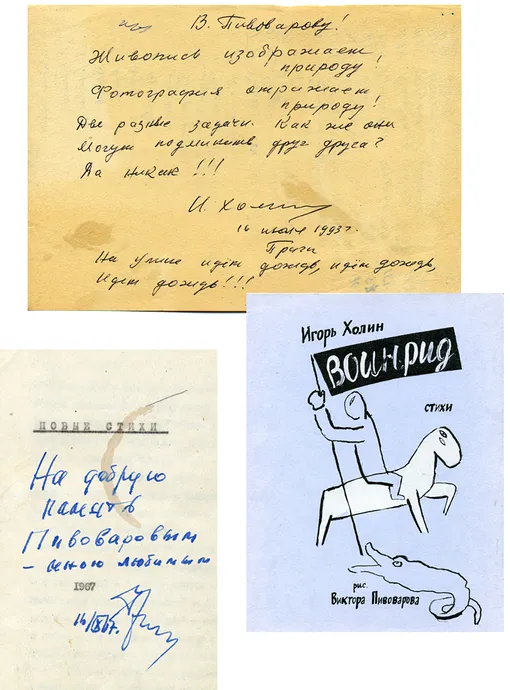 В. Пивоварову!
Живопись изображает
природу!
Фотография отражает
природу!
Две разные задачи. Как же они
могут подменить друг друга?
Да никак!!!
И. Холин
14 июля 1993 г.
Прага
На улице идёт дождь, идёт дождь,
идёт дождь!!!
НОВЫЕ СТИХИ
На добрую
память
Пивоваровым
– мною любимым
1967
Игорь Холин
ВОИНРИД
СТИХИ
рис.
Виктора Пивоварова